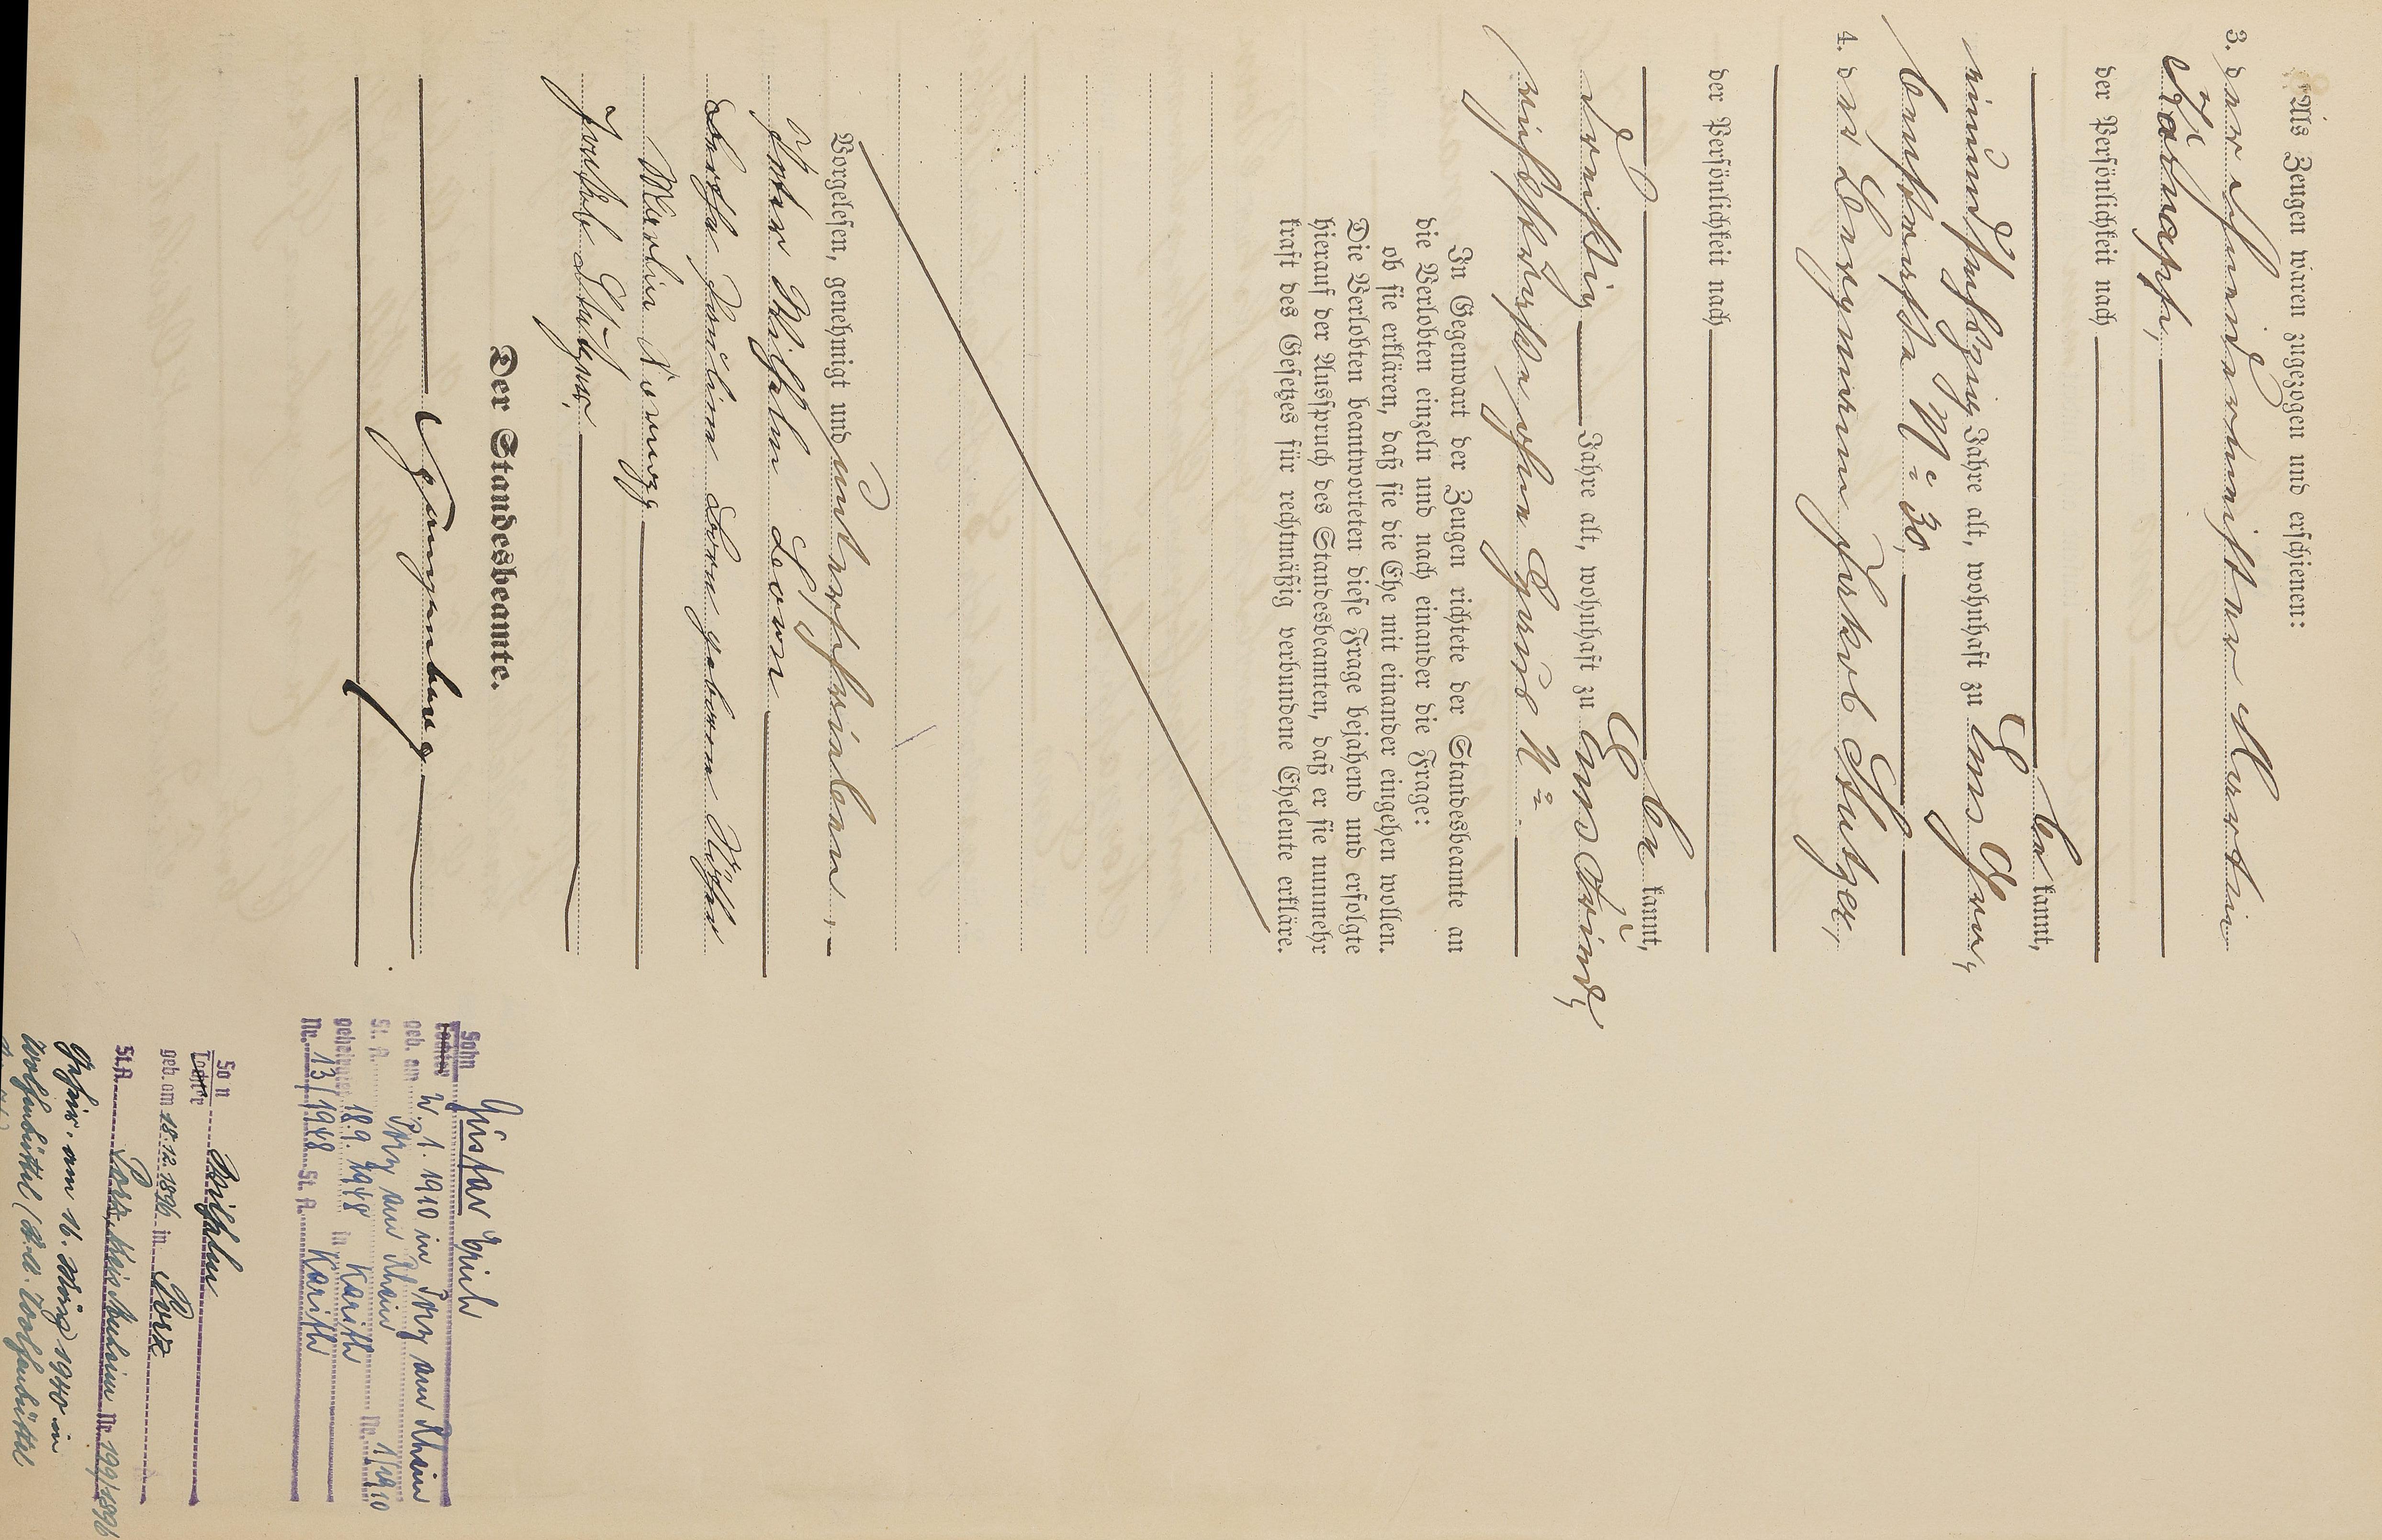 Als Zeugen waren zugezogen und erschienen:
3. der Schneidermeister Martin
Kärnapp,
der Persönlichkeit nach
be kannt,
einundfünfzig Jahre alt, wohnhaft zu Ens Gru
benstraße No 30,
4. der Bergmann Jakob Stutzer,
der Persönlichkeit nach
be kannt,
dreißig Jahre alt, wohnhaft zu
No
In Gegenwart der Zeugen richtete der Standesbeamte an
die Verlobten einzeln und nach einander die Frage:
ob sie erklären, daß sie die Ehe mit einander eingehen wollen.
Die Verlobten beantworteten diese Frage bejahend und erfolgte
hierauf der Ausspruch des Standesbeamten, daß er sie nunmehr
kraft des Gesetzes für rechtmäßig verbundene Eheleute erkläre.
Vorgelesen, genehmigt und unterschrieben,
Peter Wilhelm Dorn
Dorn geborene
Martin
Jakob Stutzer,
Der Standesbeamte.
Sohn Gustav Erich
Tochter
geb. am 4. 1. 1910 in Porz am Rhein
St. A. Porz am Rhein Nr. 1/1910
geheiratet 18.9.1948 in Karith
Nr. 13/1948 St. A. Karith
Sohn Wilhelm
Tochter
geb. am 18.12.1896 in Porz
St.A. Porz, Kreis Mülheim Nr. 199/1896
Geheir. am 16. März 1940 in
Wolfenbüttel (St.A. Wolfenbüttel